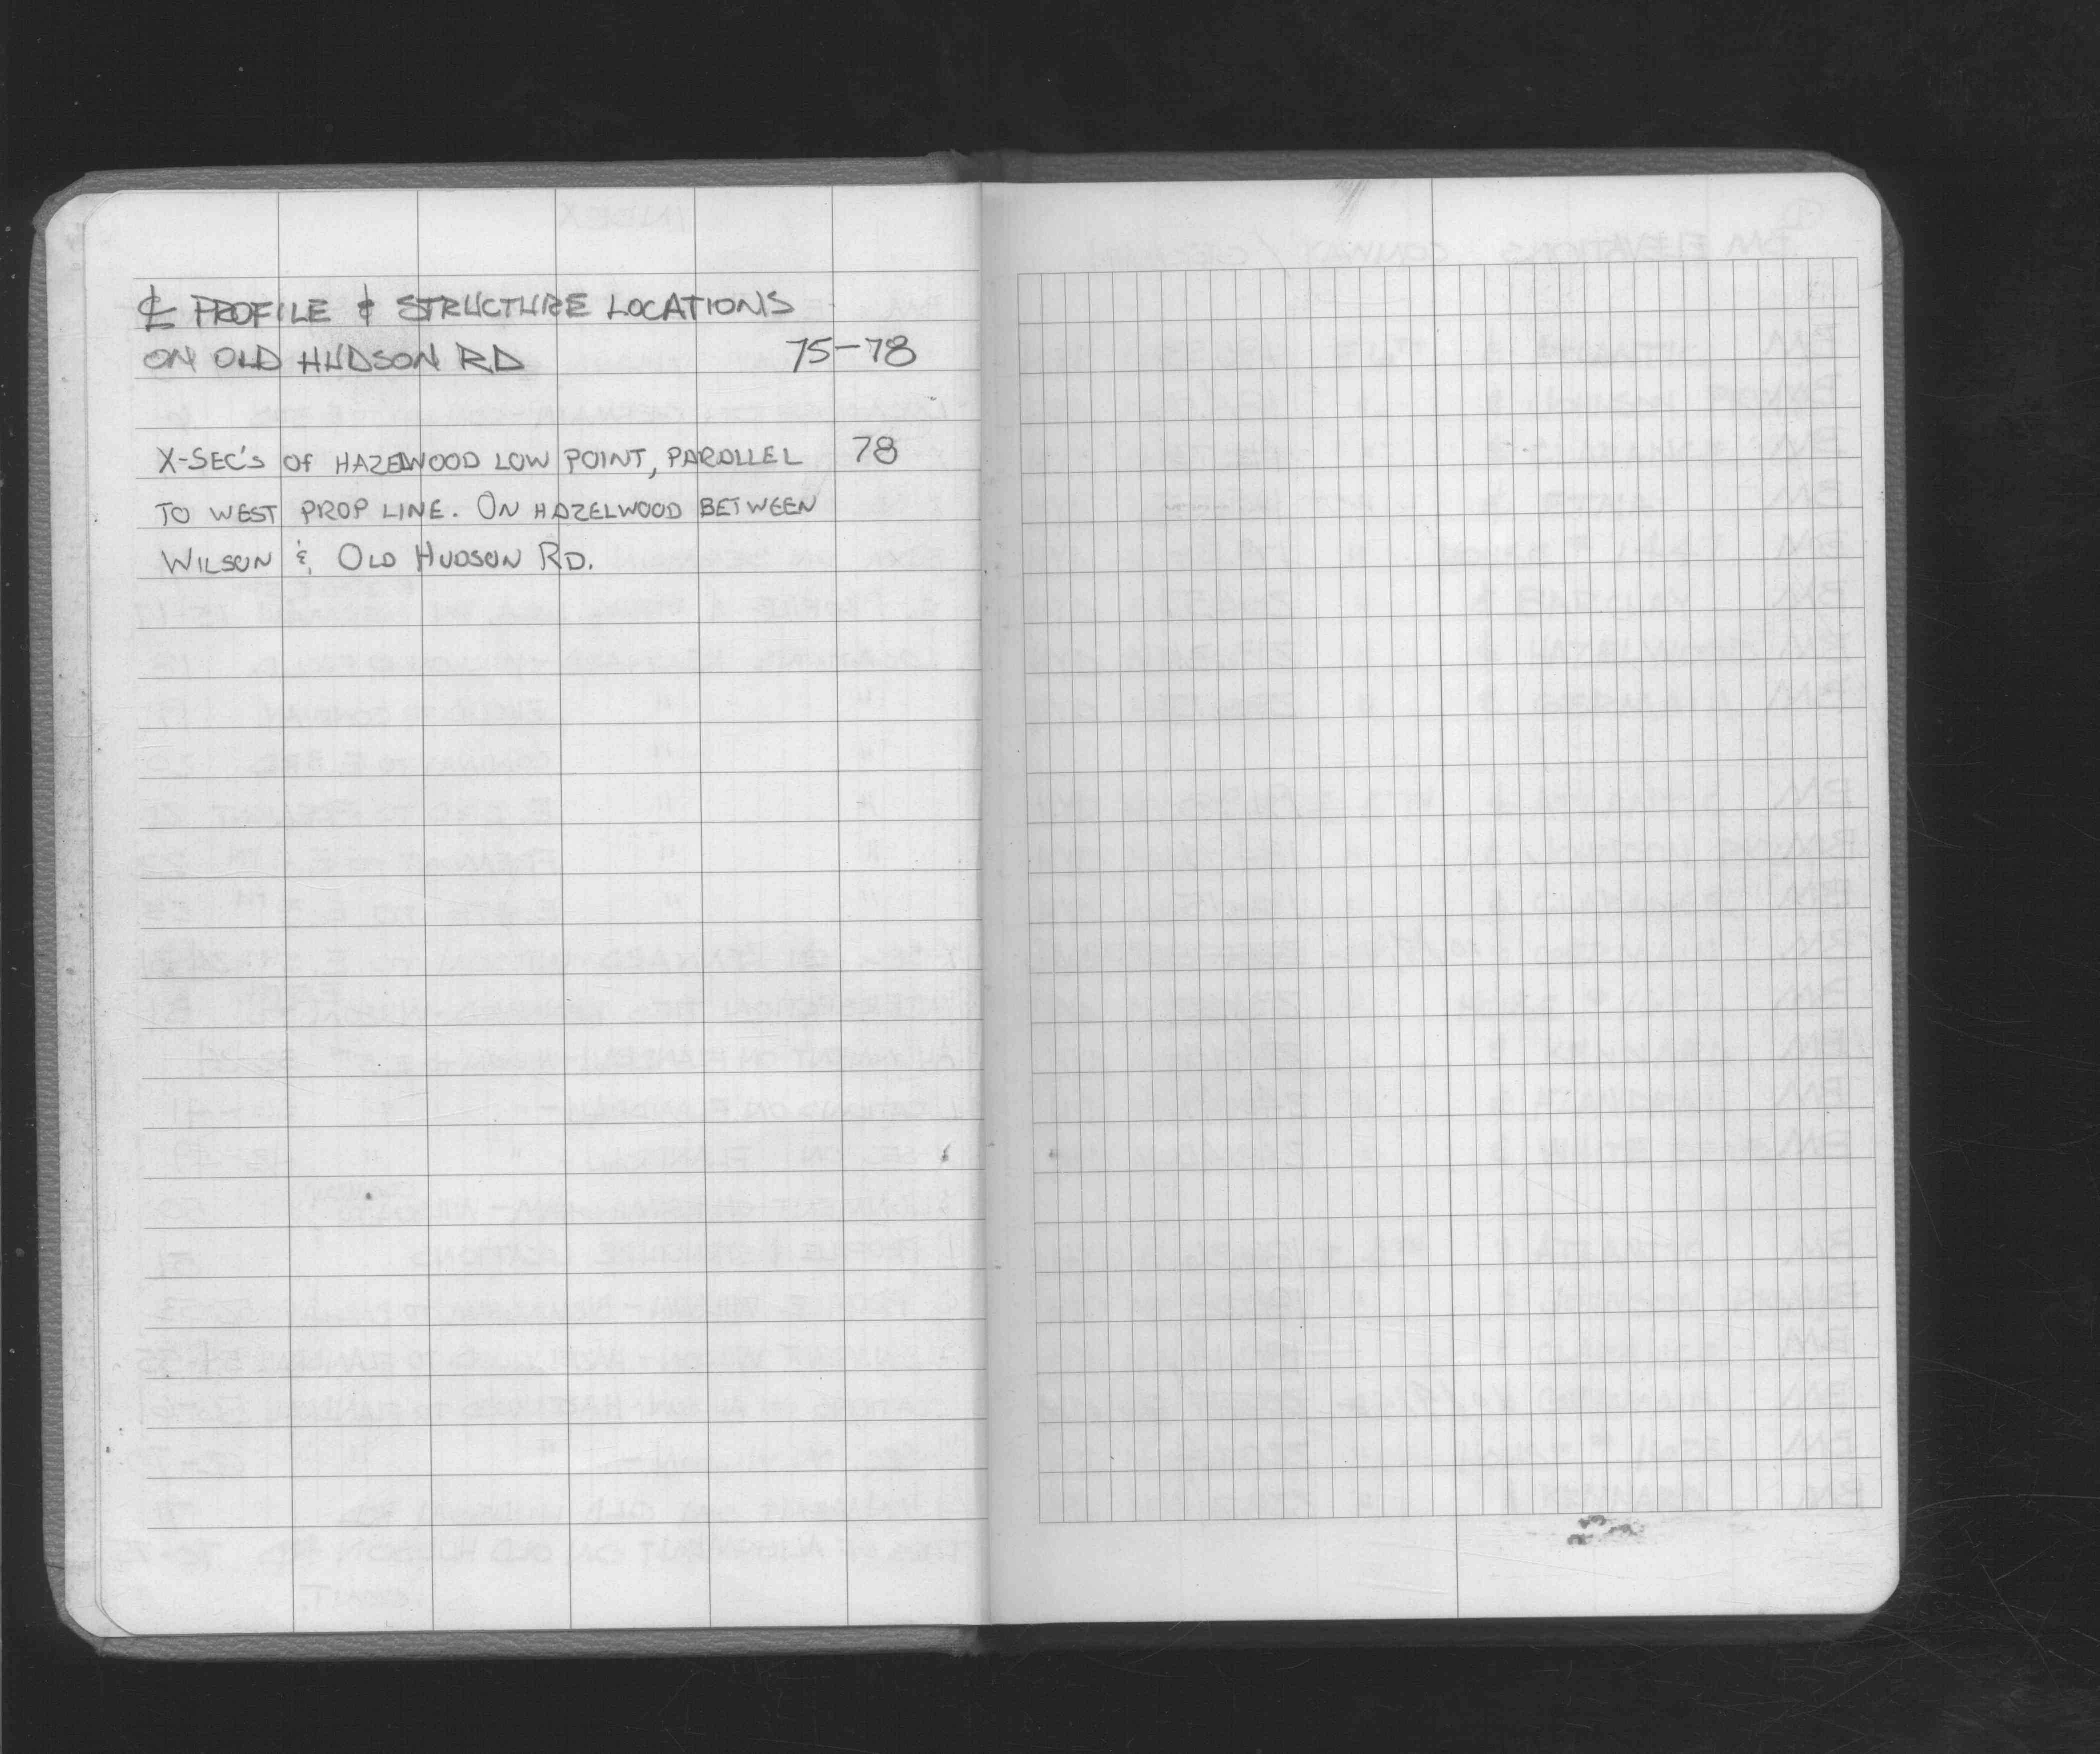 ℄ PROFILE & STRUCTURE LOCATIONS
ON OLD HUDSON RD 75-78
X-SEC'S OF HAZELWOOD LOW POINT, PARALLEL 78
TO WEST PROP LINE. ON HAZELWOOD BETWEEN
WILSON & OLD HUDSON RD.